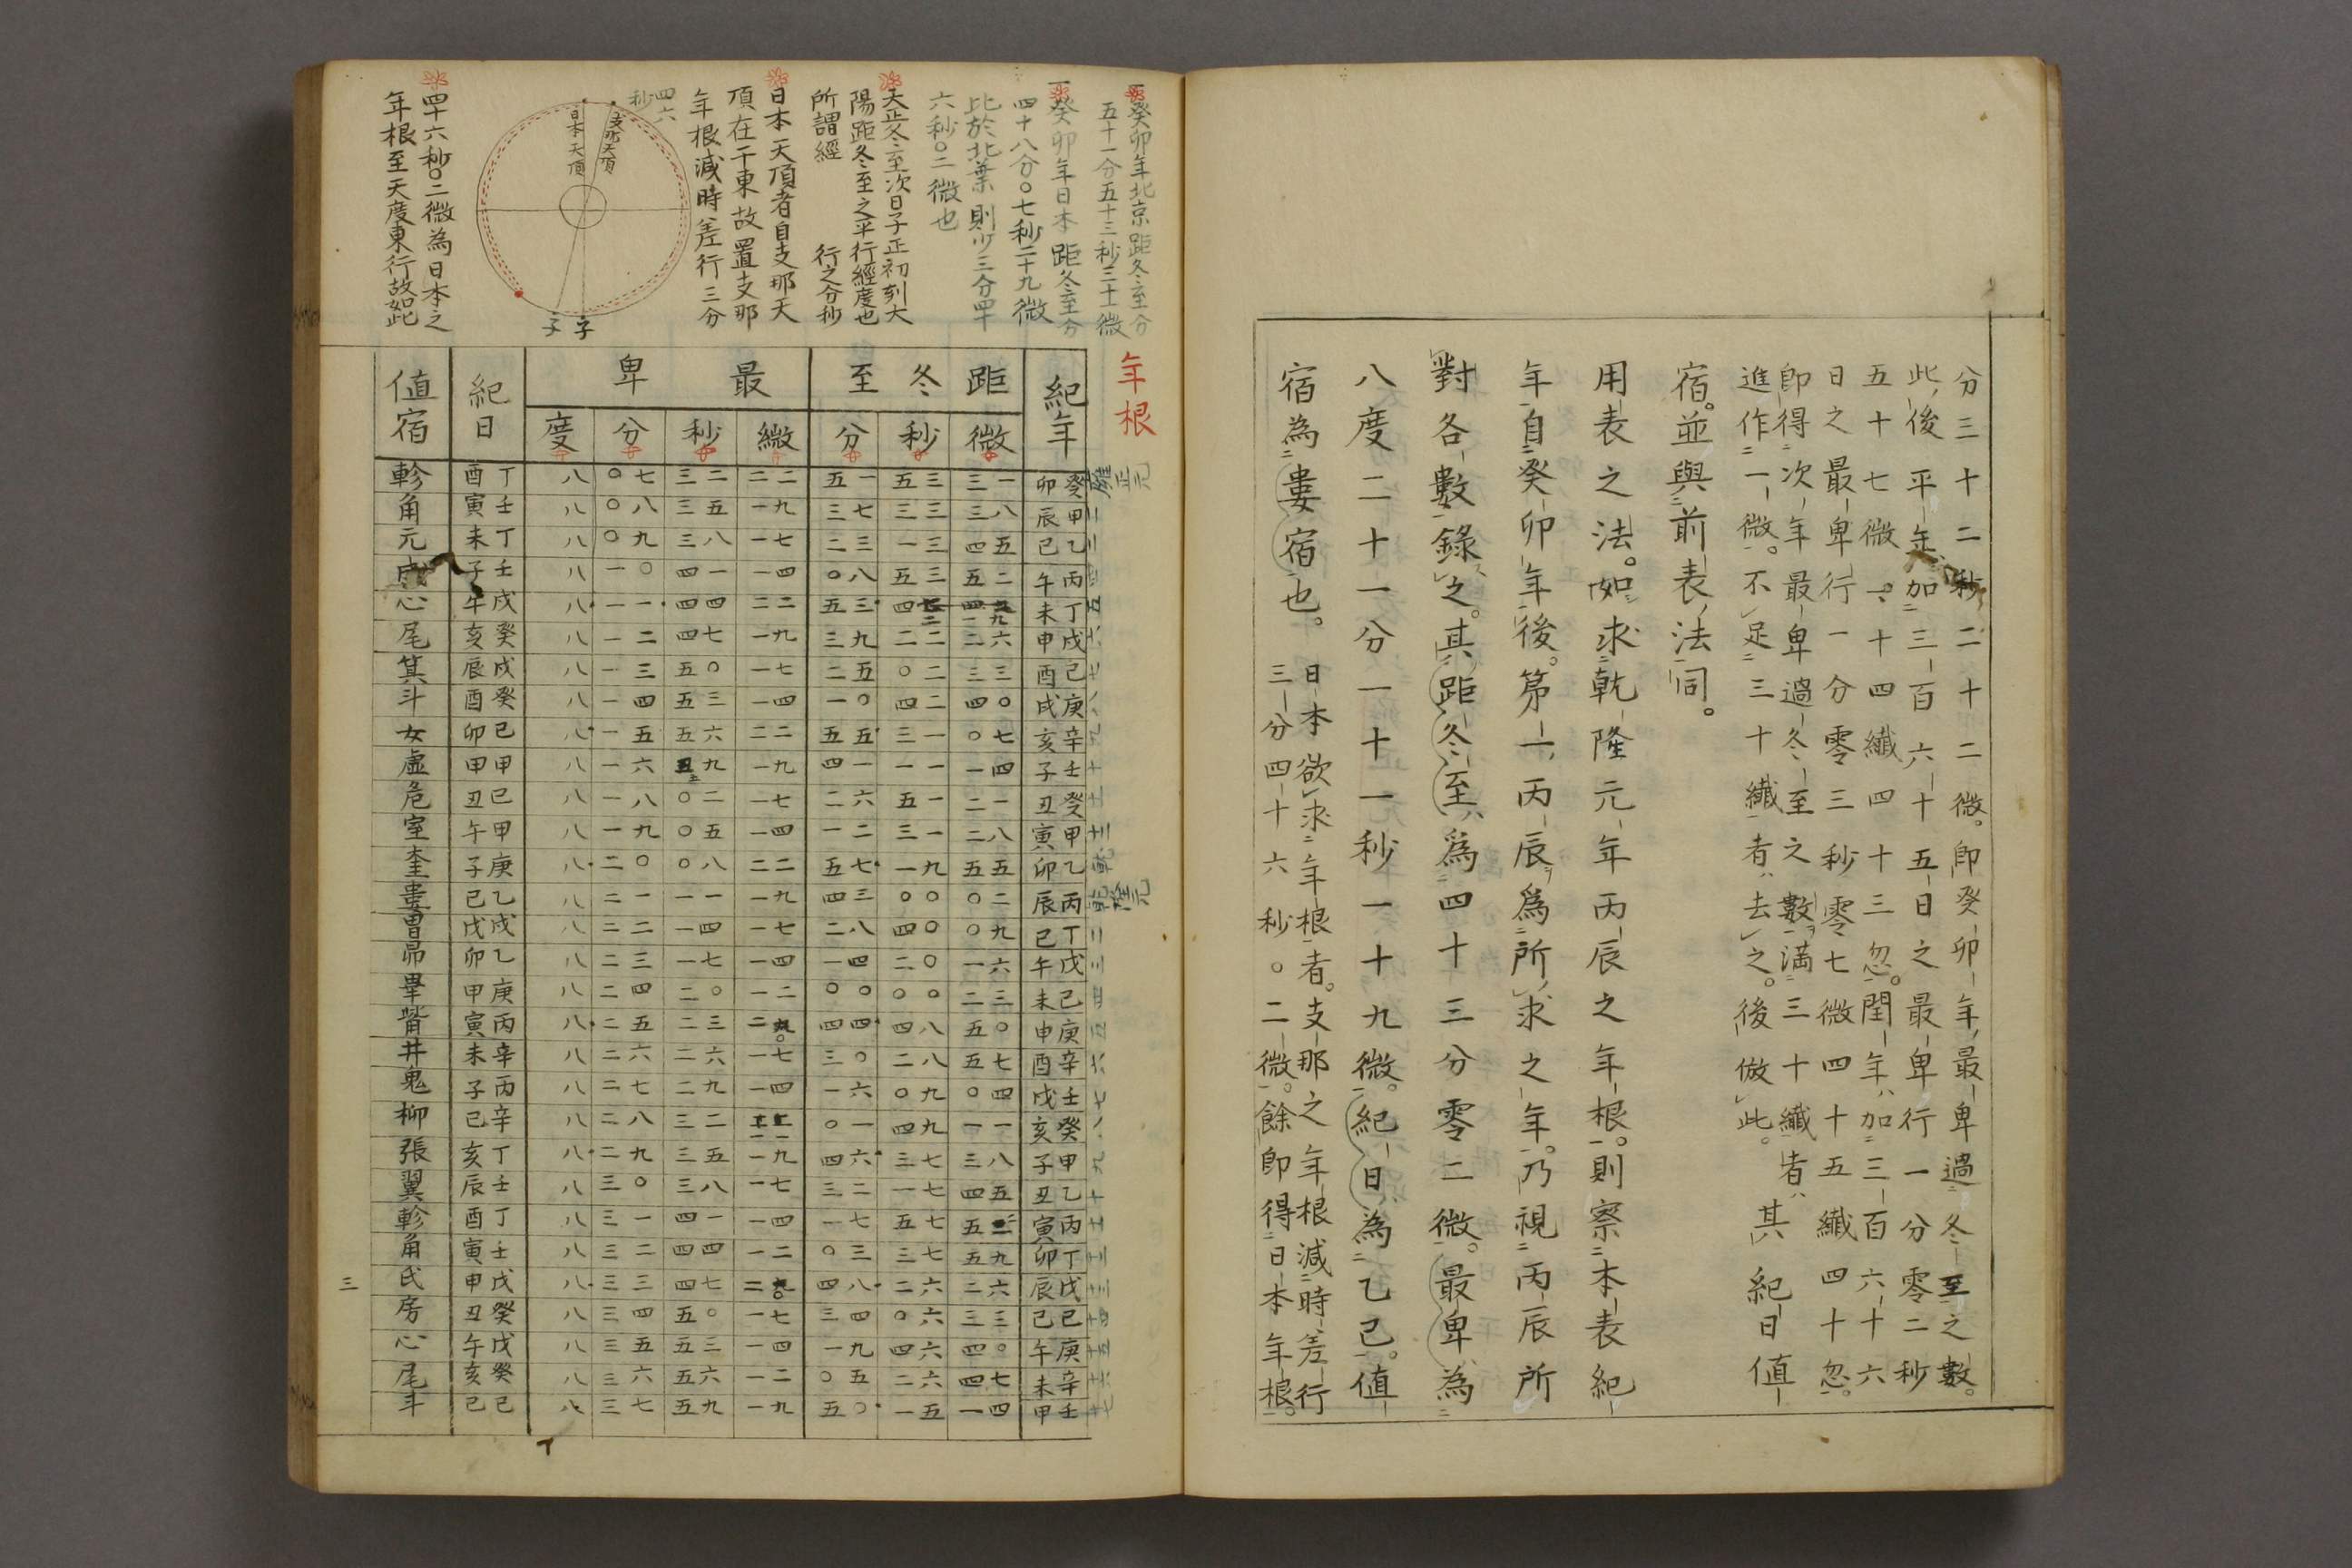 分三十二秒二十二微。即癸卯年最卑過冬至之數。
此後平年加三百六十五日之最卑行一分零二秒
五十七微一十四纖四十三忽。閏年加三百六十六
日之最卑行一分零三秒零七微四十五纖四十忽。
即得次年最卑過冬至之數。滿三十纖者、
進作一微。不足三十纖者、去之。後倣此。其紀日値
宿。並與前表法同。
用表之法。如求乾隆元年丙辰之年根。則察本表紀
年自癸卯年後。第一丙辰爲所求之年。乃視丙辰所
對各數錄之。其距冬至、爲四十三分零二微。最卑為
八度二十一分一十一秒一十九微。紀日為乙巳。値
宿為婁宿也。
日本欲求年根者。支那之年根減時差行
三分四十六秒〇二微。餘即得日本年根。
癸卯年北京距冬至分
五十一分五十三秒三十一微
癸卯年日本距冬至分
四十八分〇七秒二十九微
比於北葉則少三分四十
六秒〇二微也
天正冬至次日子正初刻太
陽距冬至之平行經度也
所謂經行之分秒
日本天頂者自支那天
頂在于東故置支那
年根減時差行三分
四六秒
支那天頂
日本天頂
子 子
四十六秒〇二微為日本之
年根至天度東行故如此
年根
紀年 距冬至 最卑 紀日 値宿
微 秒 分 纎 秒 分 度
癸卯 三一 五三 五一 二二 三二 〇七 八 丁酉 軫
甲辰 三八 三三 三七 一九 三五 〇八 八 壬寅 角
乙巳 四五 一三 二三 一七 三八 〇九 八 丁未 元
丙午 五二 五三 〇八 一四 四一 一〇 八 壬子
丁未 五三 二二 四四 一一 八 戊午 心
戊申 二六 二二 三九 一九 四七 一二 八 癸亥 尾
己酉 三三 〇二 二五 一七 五〇 一三 八 戊辰 箕
庚戌 四〇 四二 一〇 一四 五三 一四 八 癸酉 斗
辛亥 〇七 三一 五五 二二 五六 一五 八 己卯 女
壬子 一四 一一 四一 一九 五九 一六 八 甲甲 虛
癸丑 二一 五一 二六 一七 〇二 一八 八 己丑 危
甲寅 二八 三一 一二 一四 〇五 一九 八 甲午 室
乙卯 五五 一九 五七 二二 〇八 二〇 八 庚子 奎
丙辰 〇二 〇〇 四三 一九 一一 二一 八 乙巳 婁
丁巳 〇九 四〇 二八 一七 一四 二二 八 戌戌 胃
戊午 一六 二〇 一四 一四 一七 二三 八 乙卯 昴
己未 二三 〇〇 〇〇 一二 二〇 二四 八 庚甲 畢
庚申 五〇 四八 四四 二〇 二三 二五 八 丙寅 觜
辛酉 五七 二八 三〇 一七 二六 二六 八 辛未 井
壬戌 〇四 〇九 一六 一四 二九 二七 八 丙子 鬼
癸亥 一一 四九 〇一 三二 二八 八 辛巳 柳
甲子 三八 三七 四六 一九 三五 二九 八 丁亥 張
乙丑 四五 一七 三二 一七 三八 三〇 八 壬辰 翼
丙寅 五二 五七 一七 一四 四一 三一 八 丁酉 軫
丁卯 五九 三七 〇三 一二 四四 三二 八 壬寅 角
戊辰 二六 二六 四八 二〇 四七 三三 八 戊申 氐
己巳 三三 〇六 三四 一七 五〇 三四 八 癸丑 房
庚午 四〇 四六 一九 一四 五三 三五 八 戊午 心
辛未 四七 二六 〇五 一二 五六 三六 八 癸亥 尾
壬甲 一四 一五 五〇 一九 五九 三七 八 己巳 斗
三